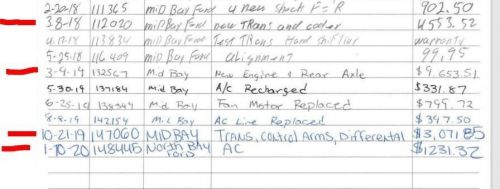 2-20-18 111365 mid Bay Ford 4 new shock F=R 902.50
3-8-18 112020 mid Bay Ford new Trans and cooler 4553.52
4-17-18 113834 mid Bay Ford Test Trans Hard shifting warranty
5-25-18 116404 mid Bay Ford alignment 99,95
3-9-19 132567 Mid Bay New Engine & Rear Axle $9,653.51
5-30-19 137184 Mid Bay A/c Recharged $331.87
6-25-19 138349 Mid Bay Fan Motor Replaced $799.72
8-8-19 142154 Mid Bay Ac Line Replaced $397.50
10-21-19 147060 MIDBAY TRANS, CONTROL ARMS, Differental $3,071.85
1-10-20 148445 NORTH BAY FORD AC $1231.32